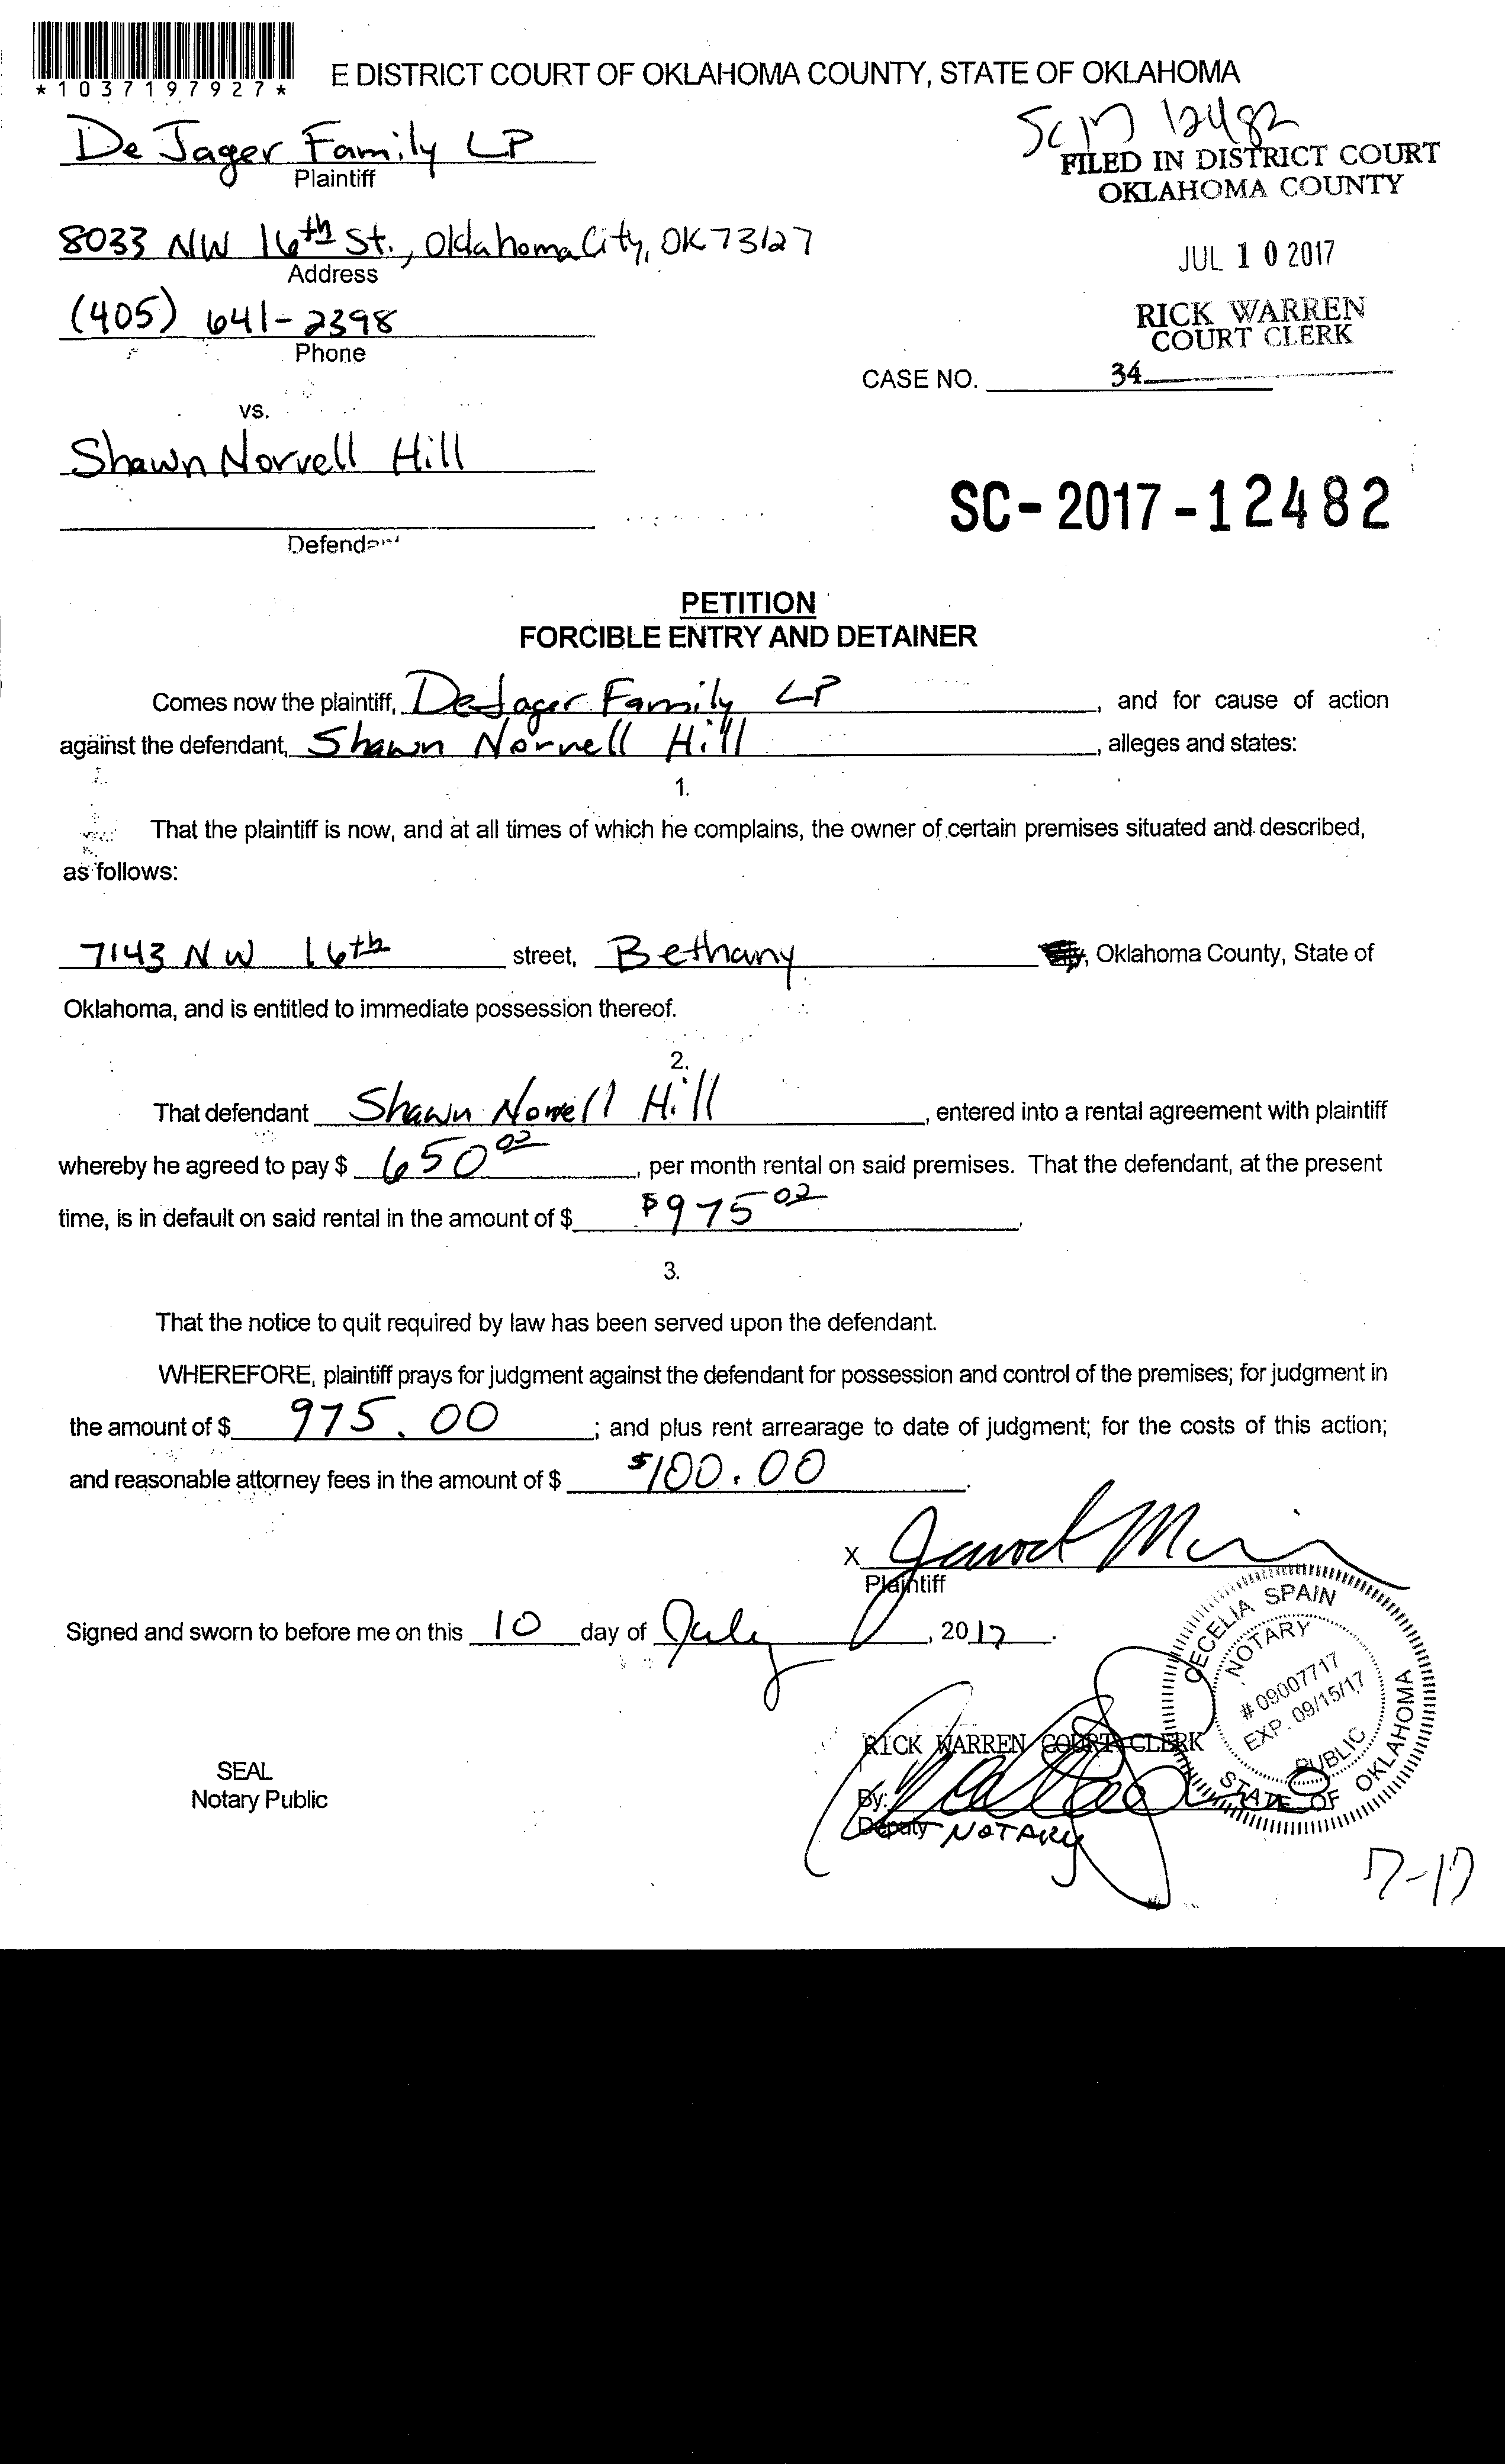 *1037197927*
E DISTRICT COURT OF OKLAHOMA COUNTY, STATE OF OKLAHOMA
SC 17 12482
De Jager Family LP
Plaintiff
FILED IN DISTRICT COURT
OKLAHOMA COUNTY
8033 NW 16th St., Oklahoma City, OK 73127
Address
JUL 10 2017
(405) 641-2398
Phone
RICK WARREN
COURT CLERK
CASE NO. 34
vs.
Shawn Norvell Hill
SC-2017-12482
Defendant
PETITION
FORCIBLE ENTRY AND DETAINER
Comes now the plaintiff, DeJager Family LP, and for cause of action
against the defendant, Shawn Norvell Hill, alleges and states:
1.
That the plaintiff is now, and at all times of which he complains, the owner of certain premises situated and described,
as follows:
7143 NW 16th street, Bethany, Oklahoma County, State of
Oklahoma, and is entitled to immediate possession thereof.
2.
That defendant Shawn Norvell Hill, entered into a rental agreement with plaintiff
whereby he agreed to pay $ 650 00, per month rental on said premises. That the defendant, at the present
time, is in default on said rental in the amount of $ $975 00.
3.
That the notice to quit required by law has been served upon the defendant.
WHEREFORE, plaintiff prays for judgment against the defendant for possession and control of the premises; for judgment in
the amount of $ 975.00; and plus rent arrearage to date of judgment; for the costs of this action;
and reasonable attorney fees in the amount of $ $100.00.
X
Plaintiff
Signed and sworn to before me on this 10 day of July, 2017.
CECELIA SPAIN
NOTARY
# 09007717
EXP. 09/15/17
PUBLIC
STATE OF OKLAHOMA
RICK WARREN COURT CLERK
SEAL
Notary Public
By:
Deputy NOTARY
7-17